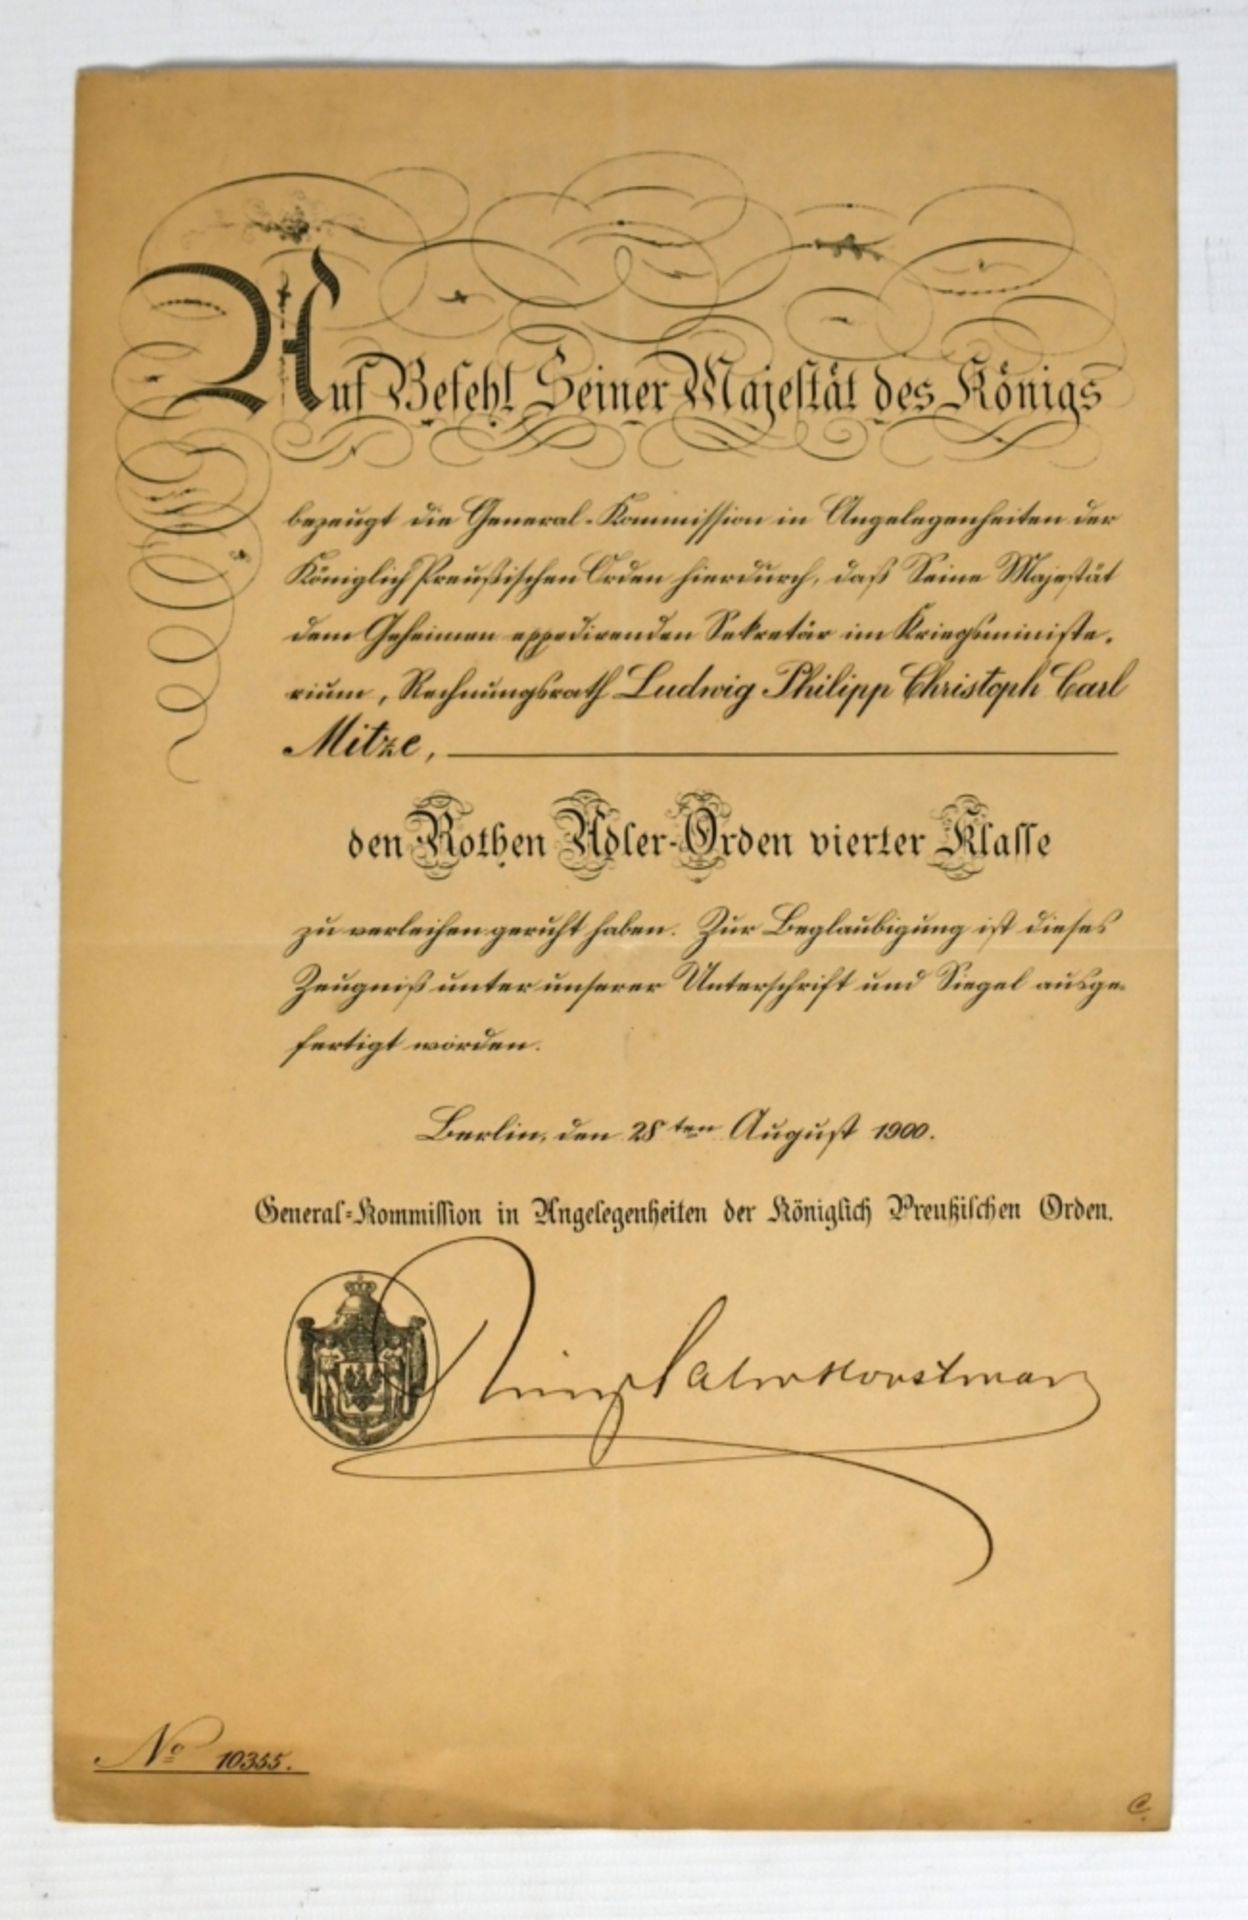 Auf Befehl Seiner Majestät des Königs
bezeugt die General-Kommission in Angelegenheiten der
Königlich Preußischen Orden hierdurch, daß Seine Majestät
dem Geheimen expedirenden Sekretär im Kriegsministe-
rium, Rechnungsrath Ludwig Philipp Christoph Carl
Mitze,
den Rothen Adler-Orden vierter Klasse
zu verleihen geruht haben. Zur Beglaubigung ist dieses
Zeugniß unter unserer Unterschrift und Siegel ausge-
fertigt worden.
Berlin, den 28ten August 1900.
General-Kommission in Angelegenheiten der Königlich Preußischen Orden.
Salm Horstmar
No 10355.
C.